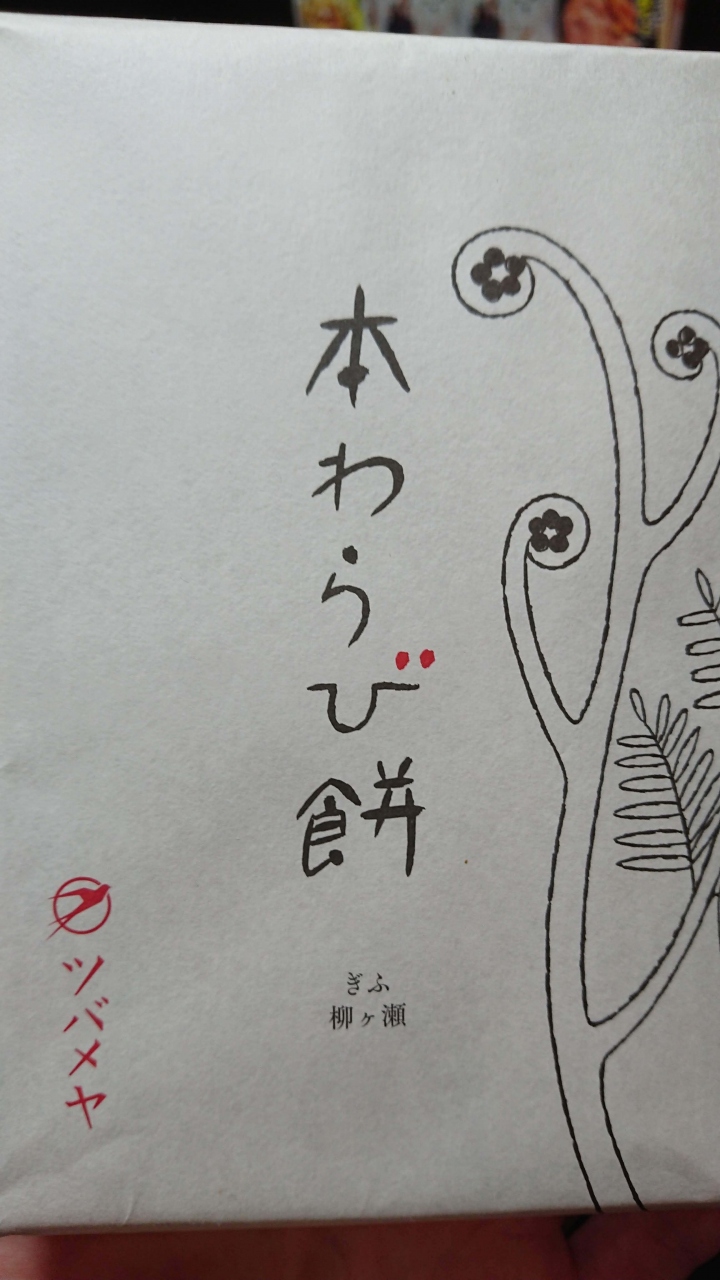 本わらび餅
ぎふ
柳ヶ瀬
ツバメヤ